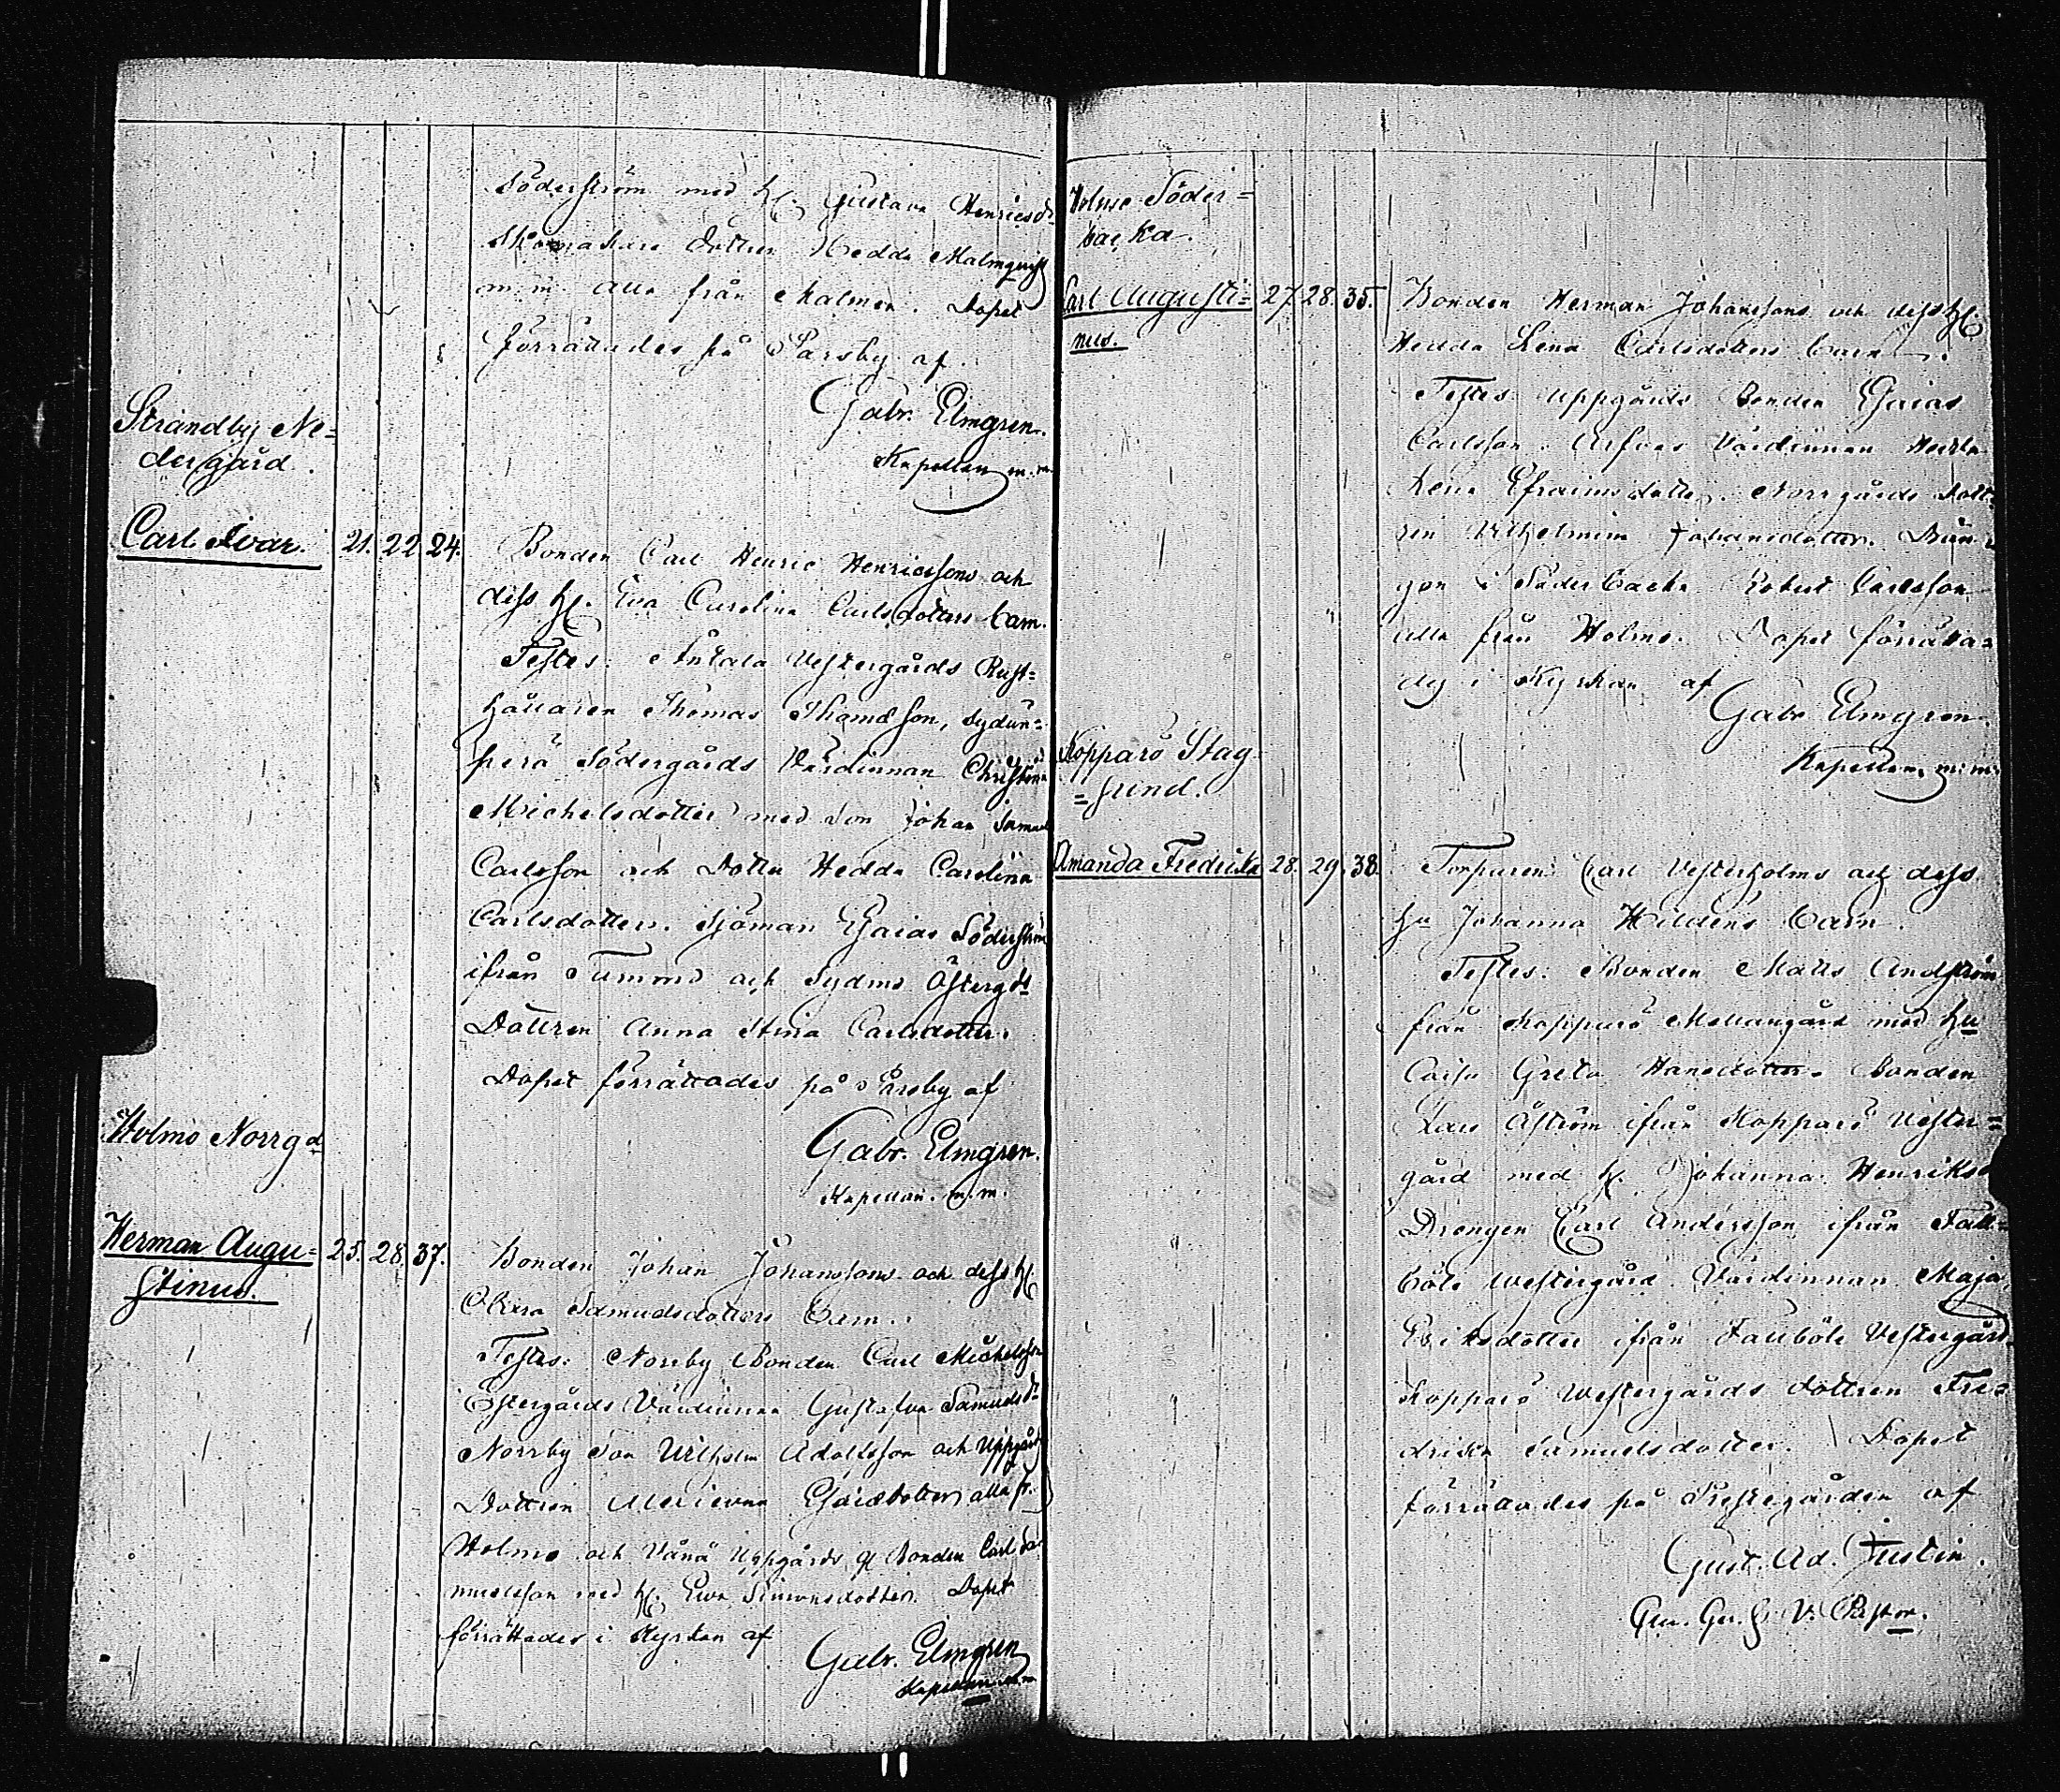 Söderström med h. Gustava Henricsdr
dotter Hedda Malmqvist
m.m. alla från Malmen. Dopet
förrättades på Parsby af
Gabr. Elmgren.
Kapellan m.m.
Strandby Ne=
dergård.
Carl Ivar. 21. 22. 24. Bonden Carl Henric Henricssons och
dess h. Eva Carolina Carlsdotters barn.
Testes: Antala Vestergårds Rust=
hållaren Thomas Thomasson, Sydän=
perä Södergårds Värdinnan Christina
Michelsdotter med Son Johan Samuel
Carlsson och Dotter Hedda Carolina
Carlsdotter. Sjöman Esaias Söderström
ifrån Tummo och Sydmo Östergds
Dottren Anna Stina Carlsdotter.
Dopet förrättades på Pärsby af
Gabr. Elmgren.
Kapellan. m.m.
Holmo Norrgd
Herman Augu= 25. 28. 37. Bonden Johan Johanssons och dess h.
stinus. Samuelsdotters Barn.
Testes: Norrby Bonden Carl Michelsson
Östergårds Värdinnan Gustafva Samuelsdr
Norrby Son Wilhelm Adolfsson och Uppgårds
Dottren Esaiædotter, alla fr.
Holmo och Vånå Uppgårds Bonden Carl Sa=
muelsson med h. Eva Simonsdotter. Dopet
förrättades i Kyrkan af
Gabr. Elmgren
Kapellan m.m
Holmo Söder=
backa.
Carl Augusti= 27. 28. 35. Bonden Herman Johanssons och dess h.
nus. Hedda Lena Carlsdotters barn.
Testes: Uppgårds Bonden Esaias
Carlsson. Arfvas Värdinnan Hedda
Lena Efraimsdotter. Norrgårds Dott=
ren Wilhelmina Johansdotter. Drän=
gen i Söderbacka Robert Carlsson
alla från Holmo. Dopet förrätta=
des i Kyrkan af
Gabr Elmgren.
Kapellan. m.m.
Kopparö Stag
=sund.
Amanda Fredrika 28. 29. 38. Torparen Carl Vesterholms och dess
hu Johanna Hildens barn.
Testes: Bonden Matts Andström
från Kopparö Mellangård med hu
Caisa Greta Hansdotter. Bonden
Lars Åström ifrån Kopparö Vester=
gård med h. Johanna Henriksdr
Drengen Carl Andersson ifrån Fall=
böle Westergård. Värdinnan Maja
Eriksdotter ifrån Fallböle Vestergård.
Kopparö Westergårds dottren Fre=
drika Samuelsdotter. Dopet
förrättades på Prestegården af
Gust. Ad. Justin.
V. Pastor.